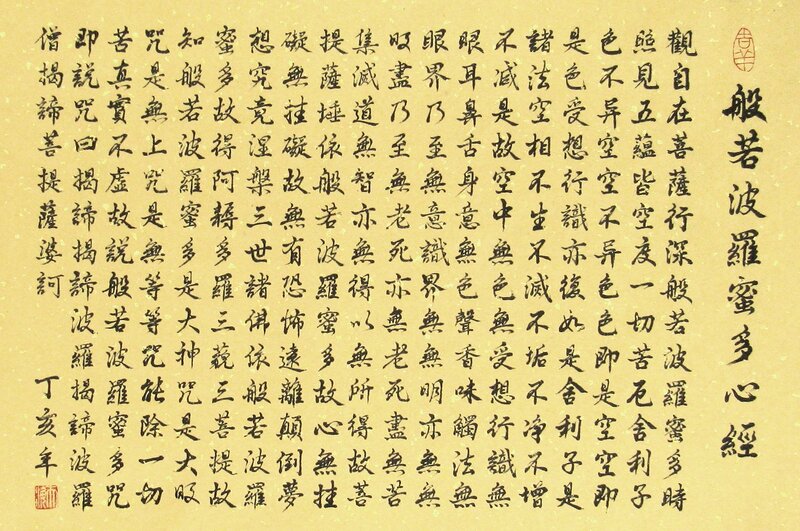 般若波羅蜜多心經
觀自在菩薩行深般若波羅蜜多時
照見五蘊皆空度一切苦厄舍利子
色不异空空不异色色即是空空即
是色受想行識亦復如是舍利子是
諸法空相不生不滅不垢不净不增
不減是故空中無色無受想行識無
眼耳鼻舌身意無色聲香味觸法無
眼界乃至無意識界無無明亦無無
明盡乃至無老死亦無老死盡無苦
集滅道無智亦無得以無所得故菩
提薩埵依般若波羅蜜多故心無挂
礙無挂礙故無有恐怖遠離顛倒夢
想究竟涅槃三世諸佛依般若波羅
蜜多故得阿耨多羅三藐三菩提故
知般若波羅蜜多是大神咒是大明
咒是無上咒是無等等咒能除一切
苦真實不虛故説般若波羅蜜多咒
即説咒曰揭諦揭諦波羅揭諦波羅
僧揭諦菩提薩婆訶
丁亥年